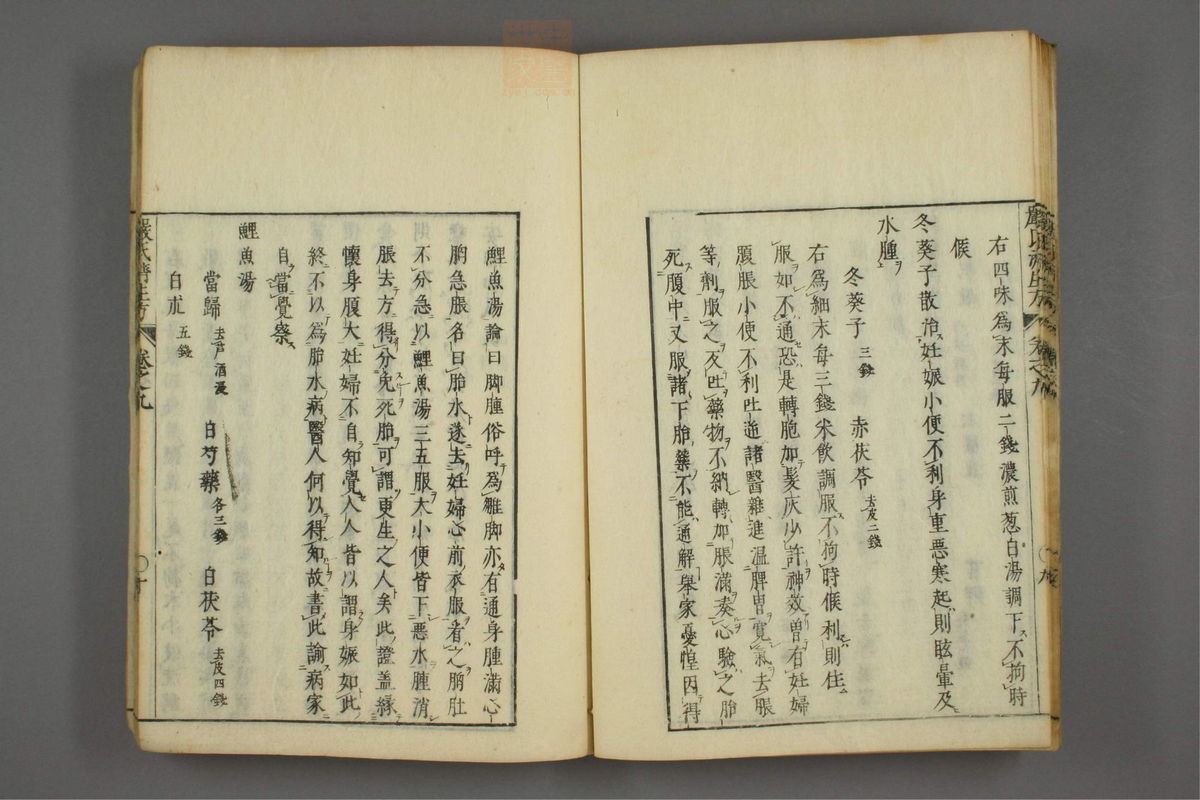 右四味爲末每服二錢濃煎葱白湯調下不拘時
候
冬葵子散冶妊娠小便不利身重惡寒起則眩暈及
水腫
冬葵子三錢 赤茯苓去皮二錢
右爲細末每三錢米飲調服不拘時候利則住
服如不通恐是轉胞加髮灰少許神效曽有妊婦
腹脹小便不利吐逆諸醫雜進温脾胃寬氣去脹
等劑服之反吐藥物不納轉加脹滿奏心驗之胎
死腹中又服諸下胎藥不能通解舉家憂惶因得
鯉魚湯論曰脚腫俗呼爲皺脚亦有通身腫滿心
胷急脹名曰胎水遂去妊婦心前衣服看之胷肚
不分急以鯉魚湯三五服大小便皆下惡水腫消
脹去方得分免死胎可謂更生之人矣此證盖緣
懷身腹大妊婦不自知覺人人皆以謂身娠如此
終不以爲胎水病醫人何以得知故書此諭病家
自當覺察
鯉魚湯
當歸去芦酒浸 白芍藥各三錢 白茯苓去皮四錢
白朮五錢
嚴氏濟生方 卷之九 〇十